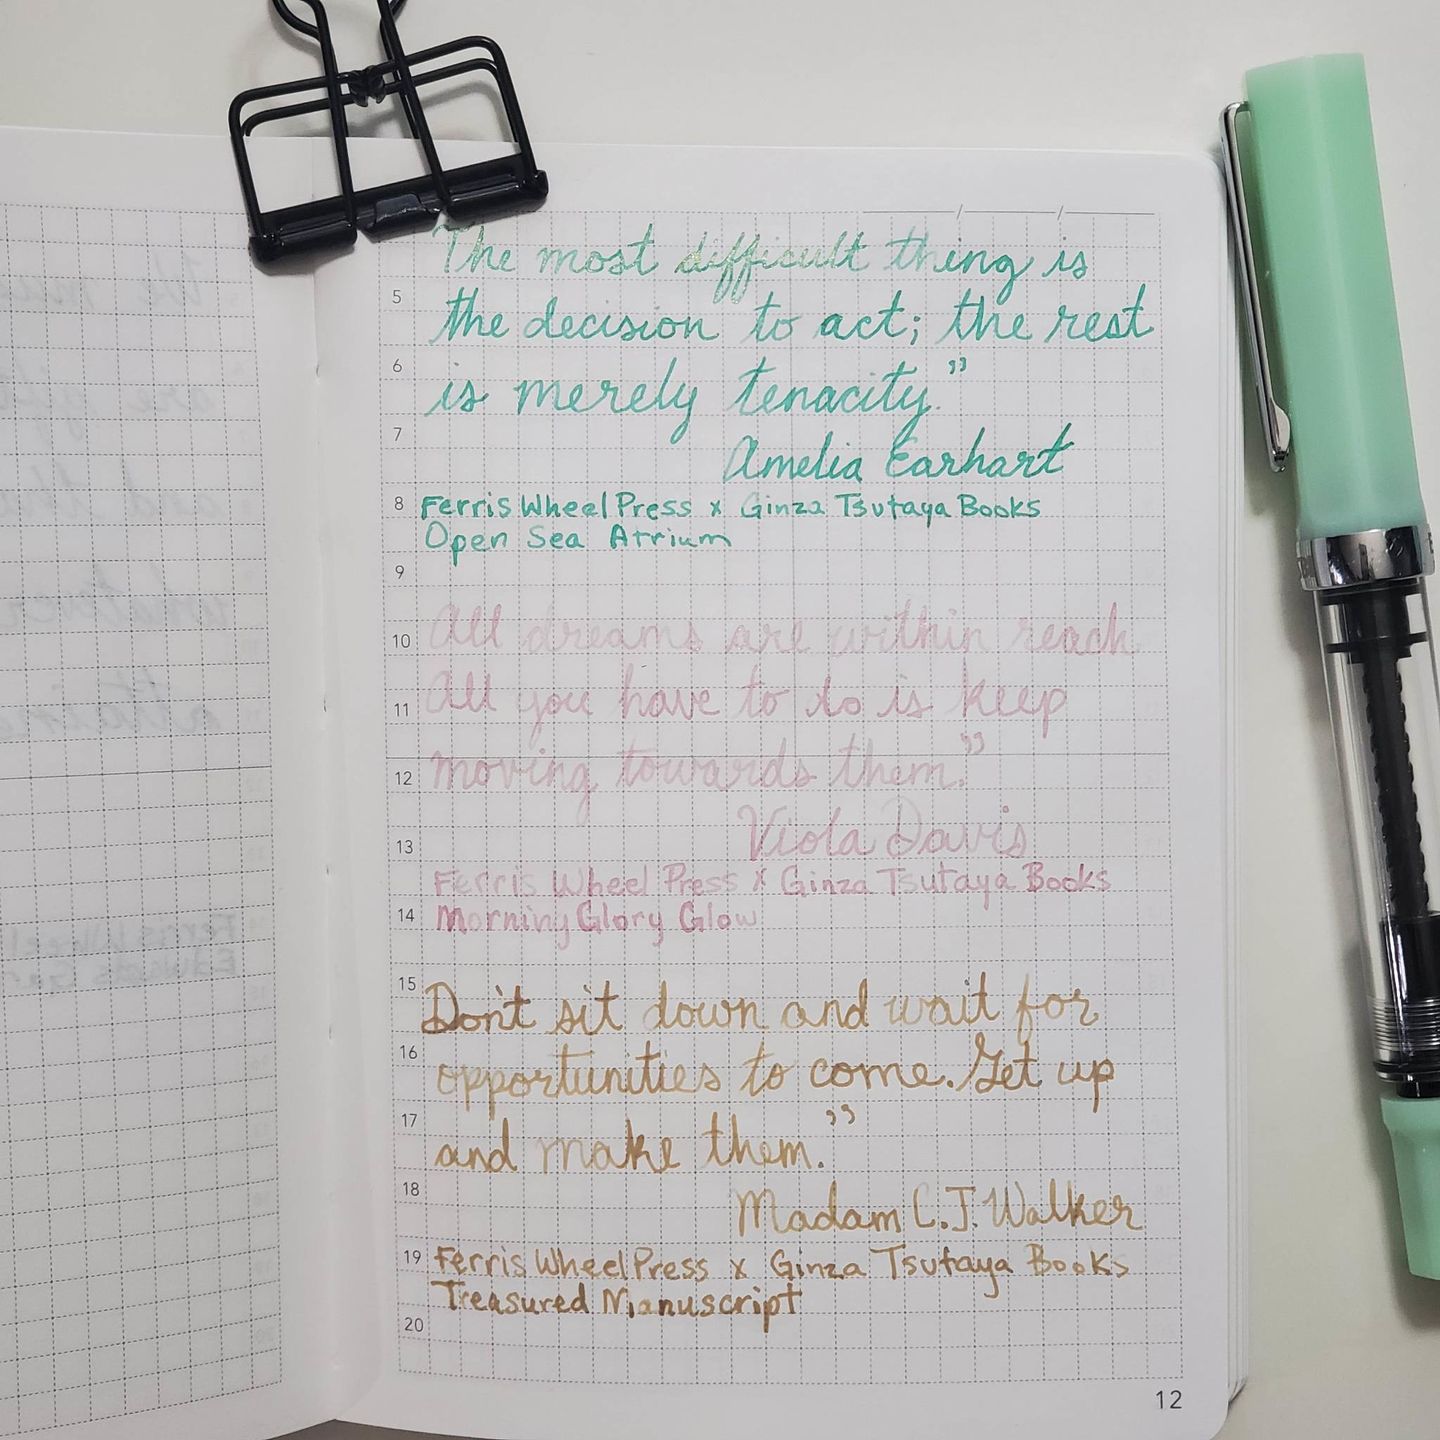 The most difficult thing is
5
the decision to act; the rest
6
is merely tenacity."
7
Amelia Earhart
8 Ferris Wheel Press x Ginza Tsutaya Books
Open Sea Atrium
9
10 All dreams are within reach
11 All you have to do is keep
12 moving towards them."
13 Viola Davis
Ferris Wheel Press x Ginza Tsutaya Books
14 Morning Glory Glow
15 Don't sit down and wait for
16 opportunities to come. Get up
17 and make them."
18 Madam C.J. Walker
19 Ferris Wheel Press x Ginza Tsutaya Books
Treasured Manuscript
20
12